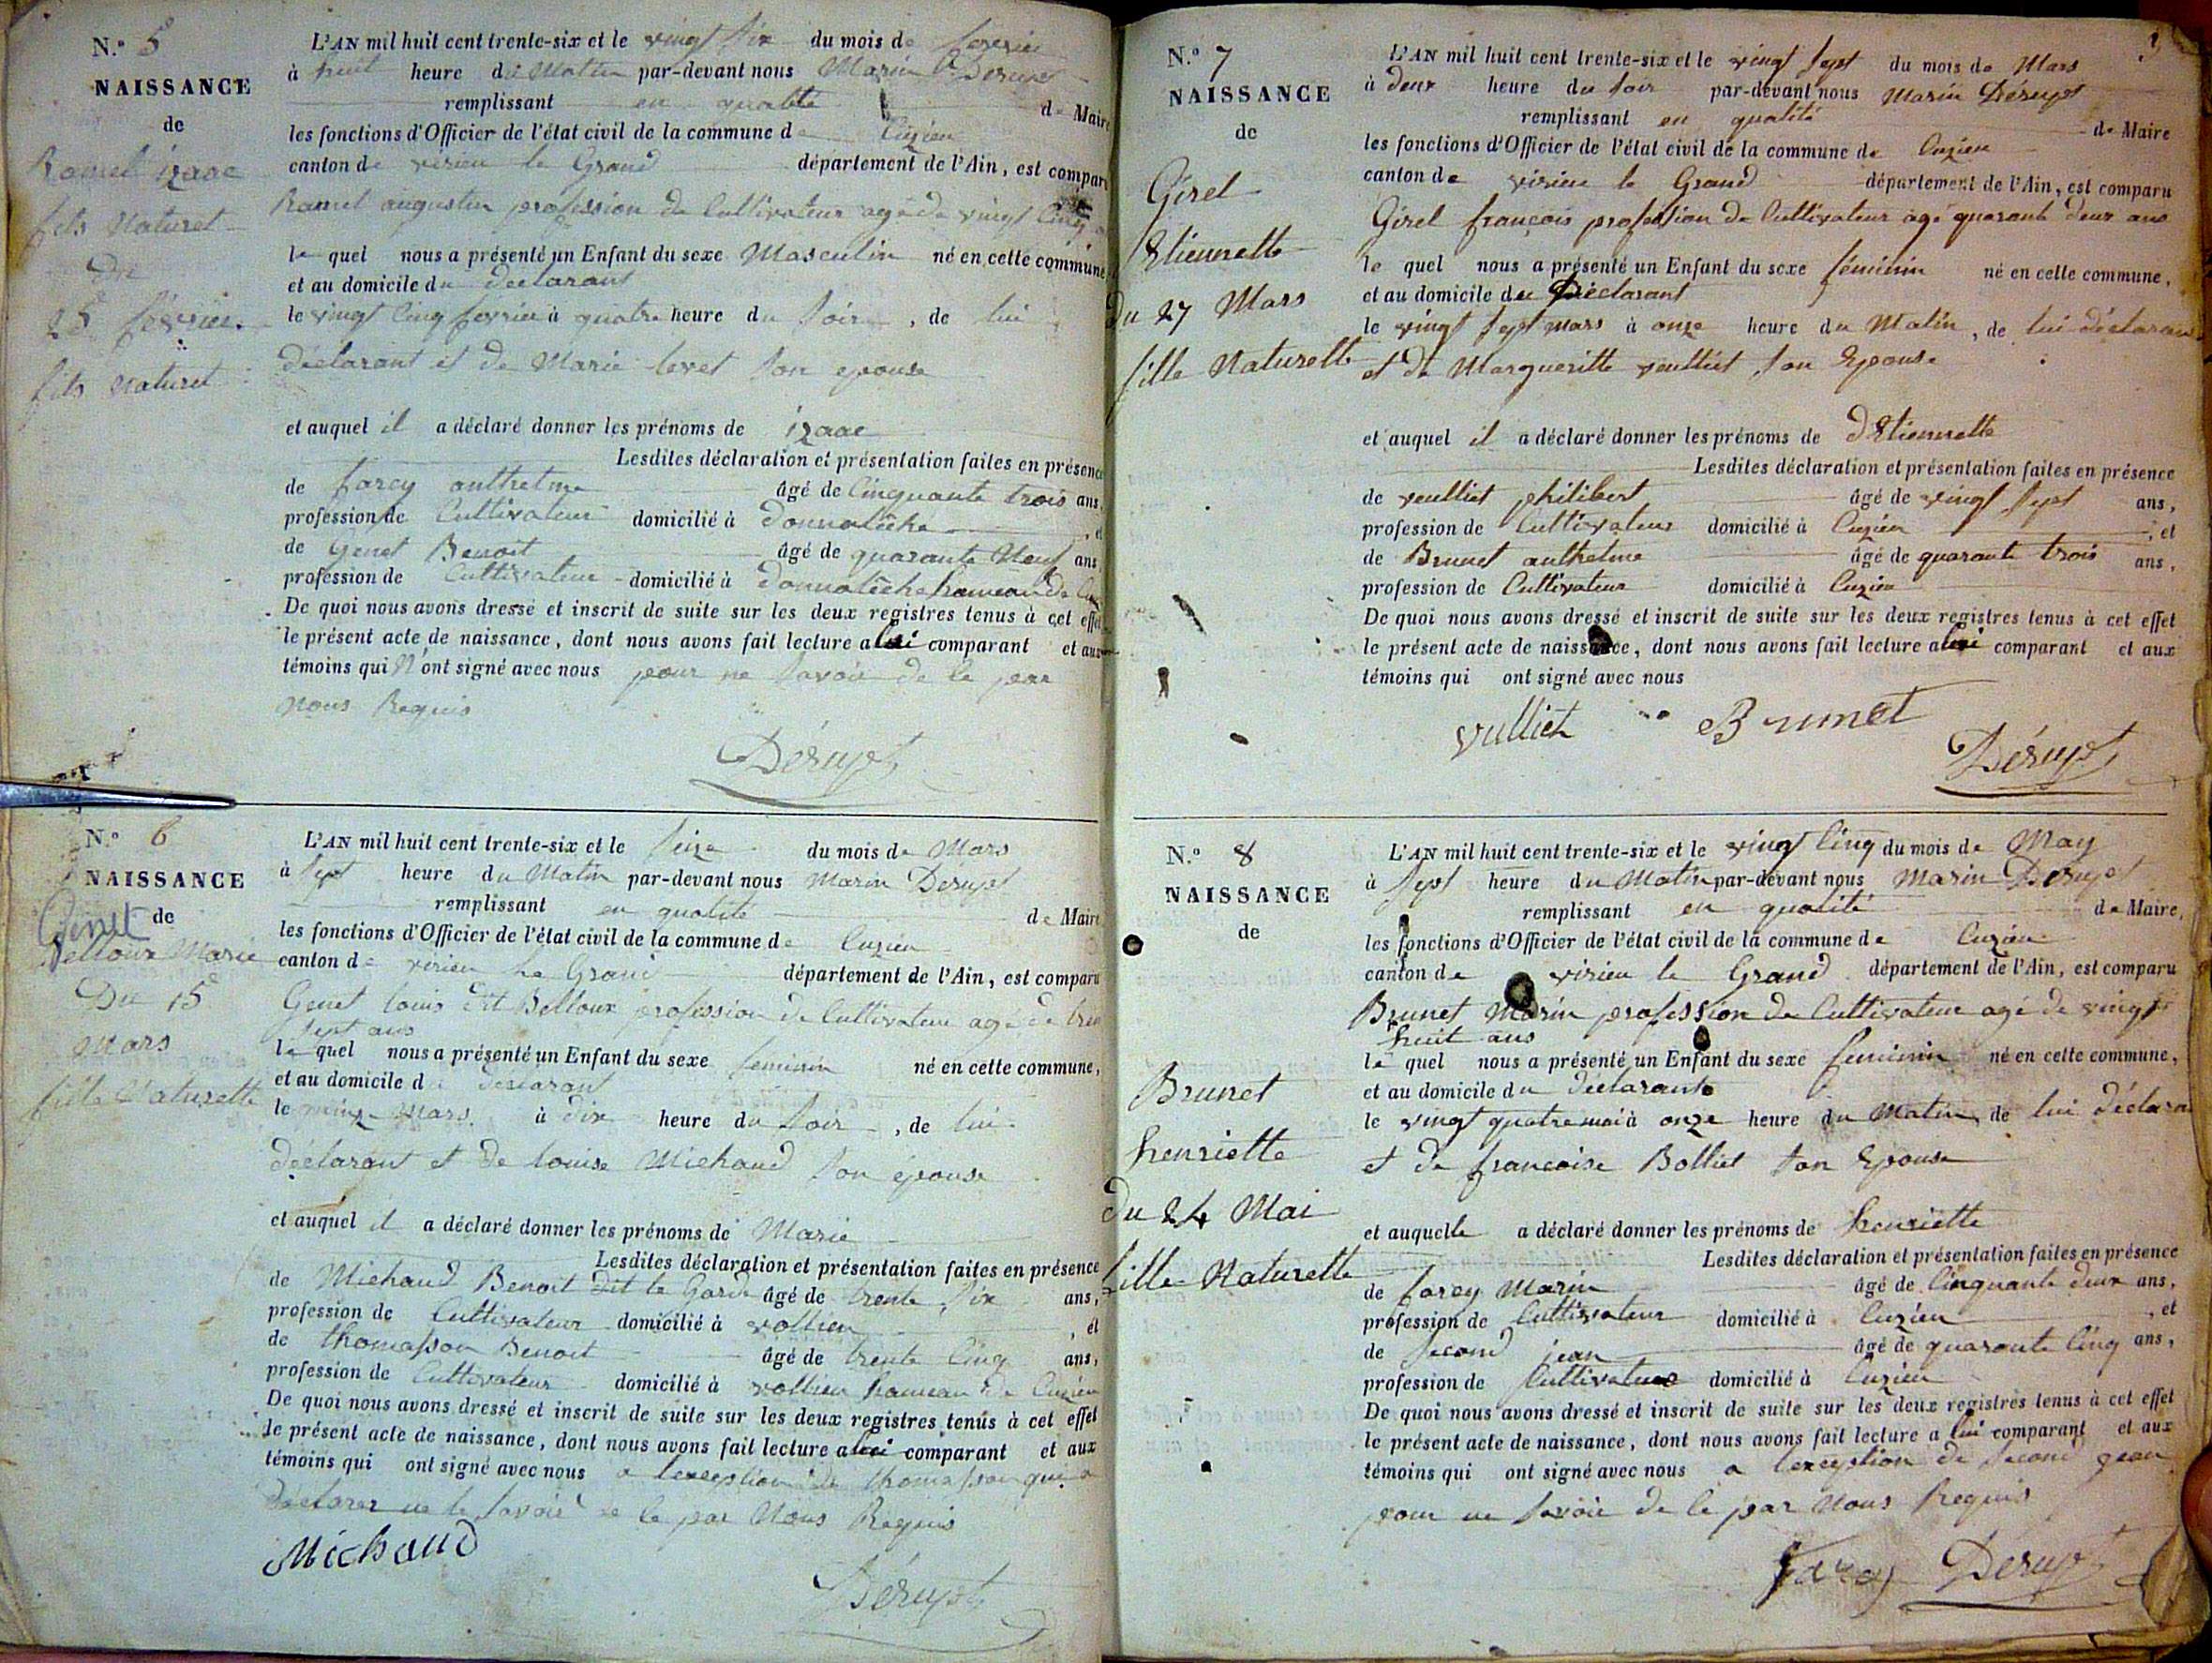 N.° 5
NAISSANCE
de
Ramel izaac
fils Naturel
Du
25 février.
fils Naturel
L'AN mil huit cent trente-six et le vingt six du mois de fevrier
à huit heure du Matin par-devant nous Marin Deruyet
remplissant en qualité de Maire
les fonctions d'Officier de l'état civil de la commune de Cuzieu
canton de virieu le Grand département de l'Ain, est comparu
Ramel augustin profession de Cultivateur agé de vingt cinq
le quel nous a présenté un Enfant du sexe Masculin né en cette commune
et au domicile du déclarant
le vingt cinq fevrier à quatre heure du soir, de lui
déclarant et de Marie levet son epouse
et auquel il a déclaré donner les prénoms de izaac
Lesdites déclaration et présentation faites en présence
de farcy anthelme âgé de cinquante trois ans,
profession de Cultivateur domicilié à donnalèche, et
de Genet Benoit âgé de quarante Neuf ans
profession de Cultivateur domicilié à donnalèche hameau de
De quoi nous avons dressé et inscrit de suite sur les deux registres tenus à cet effet
le présent acte de naissance, dont nous avons fait lecture a lui comparant et aux
témoins qui N'ont signé avec nous pour ne savoir de le par
Nous Requis
Déruyet
N.° 6
NAISSANCE
de
Genet
Belloux Marie
Du 15
Mars
fille Naturelle
L'AN mil huit cent trente-six et le seize du mois de Mars
à sept heure du Matin par-devant nous Marin Deruyet
remplissant en qualité de Maire
les fonctions d'Officier de l'état civil de la commune de Cuzieu
canton de virieu le Grand département de l'Ain, est comparu
Genet louis dit Belloux profession de Cultivateur agé de
sept ans
le quel nous a présenté un Enfant du sexe feminin né en cette commune,
et au domicile du déclarant
le Mars à dix heure du soir, de lui
déclarant et de louise Michaud son épouse
et auquel il a déclaré donner les prénoms de Marie
Lesdites déclaration et présentation faites en présence
de Michaud Benoit dit le Garde âgé de trente six ans,
profession de Cultivateur domicilié à vollien, et
de thomasson Benoit âgé de trente cinq ans,
profession de Cultivateur domicilié à vollien hameau de Cuzieu
De quoi nous avons dressé et inscrit de suite sur les deux registres tenus à cet effet
le présent acte de naissance, dont nous avons fait lecture a lui comparant et aux
témoins qui ont signé avec nous a lexception de thomasson qui a
déclarer ne le savoir de le par Nous Requis
Michaud
Déruyet
N.° 7
NAISSANCE
de
Girel
Etiennette
Du 27 Mars
fille Naturelle
L'AN mil huit cent trente-six et le vingt sept du mois de Mars
à deux heure du soir par-devant nous Marin Déruyet
remplissant en qualité de Maire
les fonctions d'Officier de l'état civil de la commune de Cuzieu
canton de virieu le Grand département de l'Ain, est comparu
Girel françois profession de Cultivateur agé quarante deux ans
le quel nous a présenté un Enfant du sexe féminin né en cette commune,
et au domicile du Déclarant
le vingt sept mars à onze heure du Matin, de lui déclarant
et de Margueritte veulliet son Epouse
et auquel il a déclaré donner les prénoms de dEtiennette
Lesdites déclaration et présentation faites en présence
de veulliet philibert âgé de vingt sept ans,
profession de Cultivateur domicilié à Cuzieu, et
de Brunet anthelme âgé de quarante trois ans,
profession de Cultivateur domicilié à Cuzieu
De quoi nous avons dressé et inscrit de suite sur les deux registres tenus à cet effet
le présent acte de naissance, dont nous avons fait lecture a lui comparant et aux
témoins qui ont signé avec nous
vulliet Brunet
Déruyet
N.° 8
NAISSANCE
de
Brunet
henriette
Du 24 Mai
fille Naturelle
L'AN mil huit cent trente-six et le vingt cinq du mois de May
à sept heure du Matin par-devant nous Marin Deruyet
remplissant en qualité de Maire,
les fonctions d'Officier de l'état civil de la commune de Cuzieu
canton de virieu le Grand département de l'Ain, est comparu
Brunet Marin profession de Cultivateur agé de vingt
huit ans
le quel nous a présenté un Enfant du sexe feminin né en cette commune,
et au domicile du déclarant
le vingt quatre mai à onze heure du Matin, de lui déclarant
et de francoise Bolliet son Epouse
et auquelle a déclaré donner les prénoms de henriette
Lesdites déclaration et présentation faites en présence
de farcy Marin âgé de cinquante deux ans,
profession de Cultivateur domicilié à Cuzieu, et
de second jean âgé de quarante cinq ans,
profession de Cultivateur domicilié à Cuzieu
De quoi nous avons dressé et inscrit de suite sur les deux registres tenus à cet effet
le présent acte de naissance, dont nous avons fait lecture a lui comparant et aux
témoins qui ont signé avec nous a lexception de second jean
pour ne savoir de le par Nous Requis
farcy Déruyet